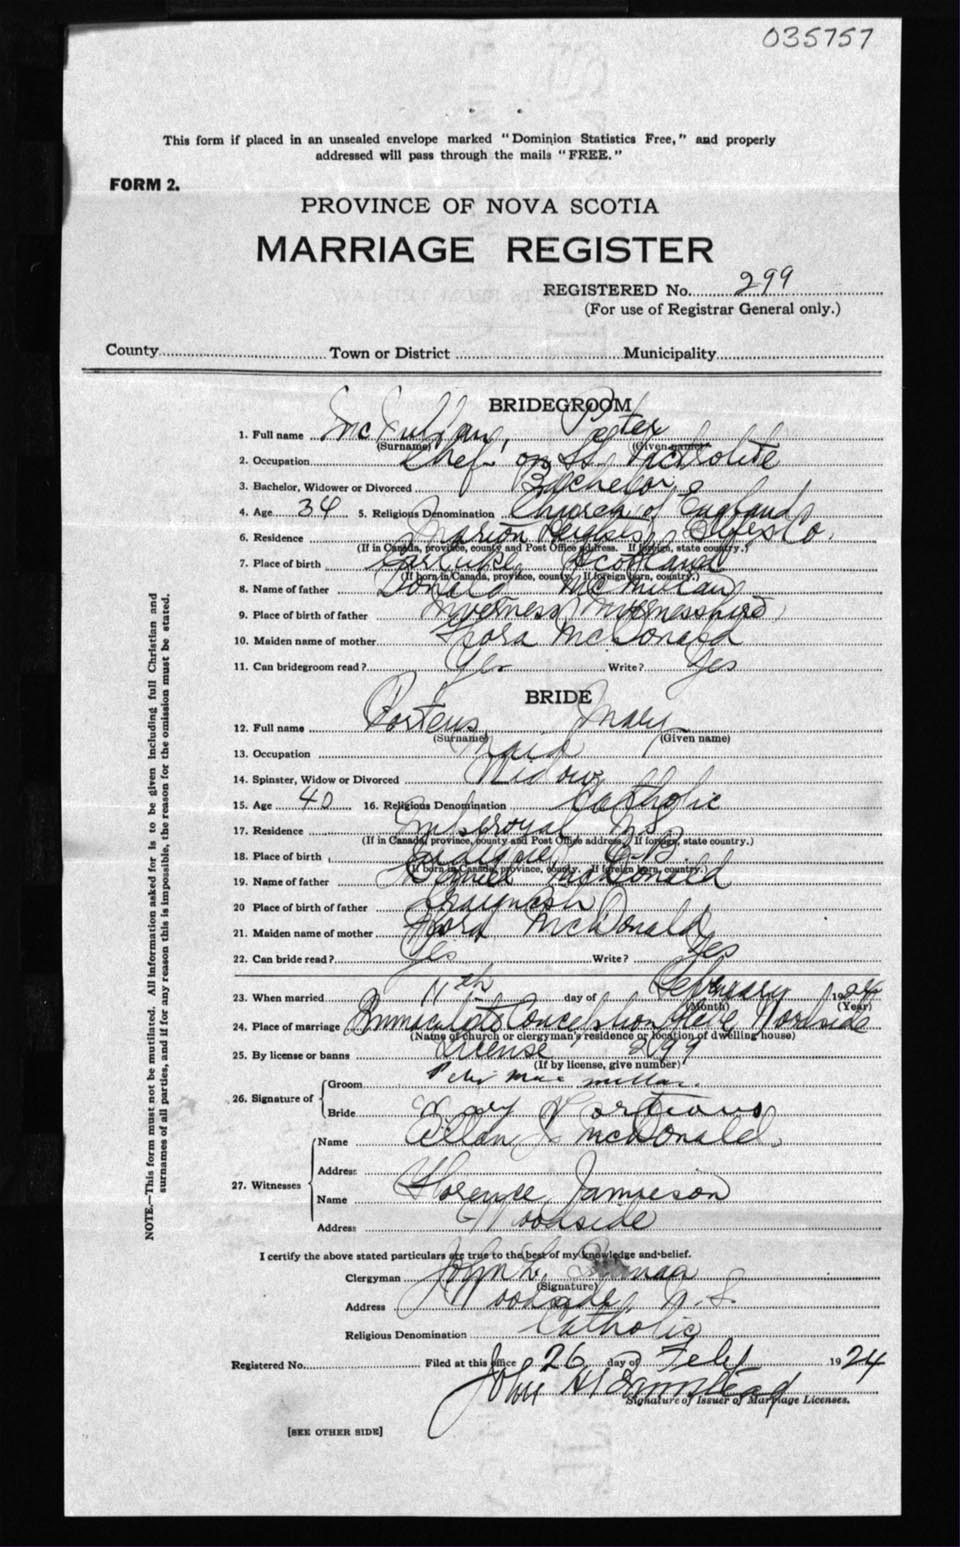 035757
This form if placed in an unsealed envelope marked "Dominion Statistics Free," and properly
addressed will pass through the mails "FREE."
FORM 2.
PROVINCE OF NOVA SCOTIA
MARRIAGE REGISTER
REGISTERED No. 299
(For use of Registrar General only.)
County Town or District Municipality
BRIDEGROOM
1. Full name Peter
(Surname) (Given name)
2. Occupation Chef on SS.
3. Bachelor, Widower or Divorced Bachelor
4. Age 34 5. Religious Denomination Church of England
6. Residence Marion Heights
(If in Canada, province, county and Post Office address. If foreign, state country.)
7. Place of birth Scotland
(If born in Canada, province, county. If foreign born, country.)
8. Name of father Donald McMillan
9. Place of birth of father Inverness Invernesshire
10. Maiden name of mother Flora McDonald
11. Can bridegroom read? Yes Write? Yes
BRIDE
12. Full name Porteus, Mary
(Surname) (Given name)
13. Occupation Maid
14. Spinster, Widow or Divorced Widow
15. Age 40 16. Religious Denomination Catholic
17. Residence N.S.
(If in Canada, province, county and Post Office address. If foreign, state country.)
18. Place of birth C.B.
(If born in Canada, province, county. If foreign born, country.)
19. Name of father McDonald
20 Place of birth of father Craignish
21. Maiden name of mother Flora McDonald
22. Can bride read? Yes Write? Yes
23. When married 11th day of February 1924
(Month) (Year)
24. Place of marriage Immaculate Conception Glebe Woodside
(Name of church or clergyman's residence or location of dwelling house)
25. By license or banns License 299
(If by license, give number)
26. Signature of Groom Peter MacMillan.
Bride Mary Porteous
27. Witnesses Name Allan J. McDonald,
Address
Name Florence Jamieson
Address Woodside
I certify the above stated particulars are true to the best of my knowledge and belief.
Clergyman John L.
(Signature)
Address Woodside, N.S.
Religious Denomination Catholic
Registered No. Filed at this office 26 day of Feby 1924
John H
Signature of Issuer of Marriage Licenses.
[SEE OTHER SIDE]
NOTE.—This form must not be mutilated. All information asked for is to be given including full Christian and
surnames of all parties, and if for any reason this is impossible, the reason for the omission must be stated.